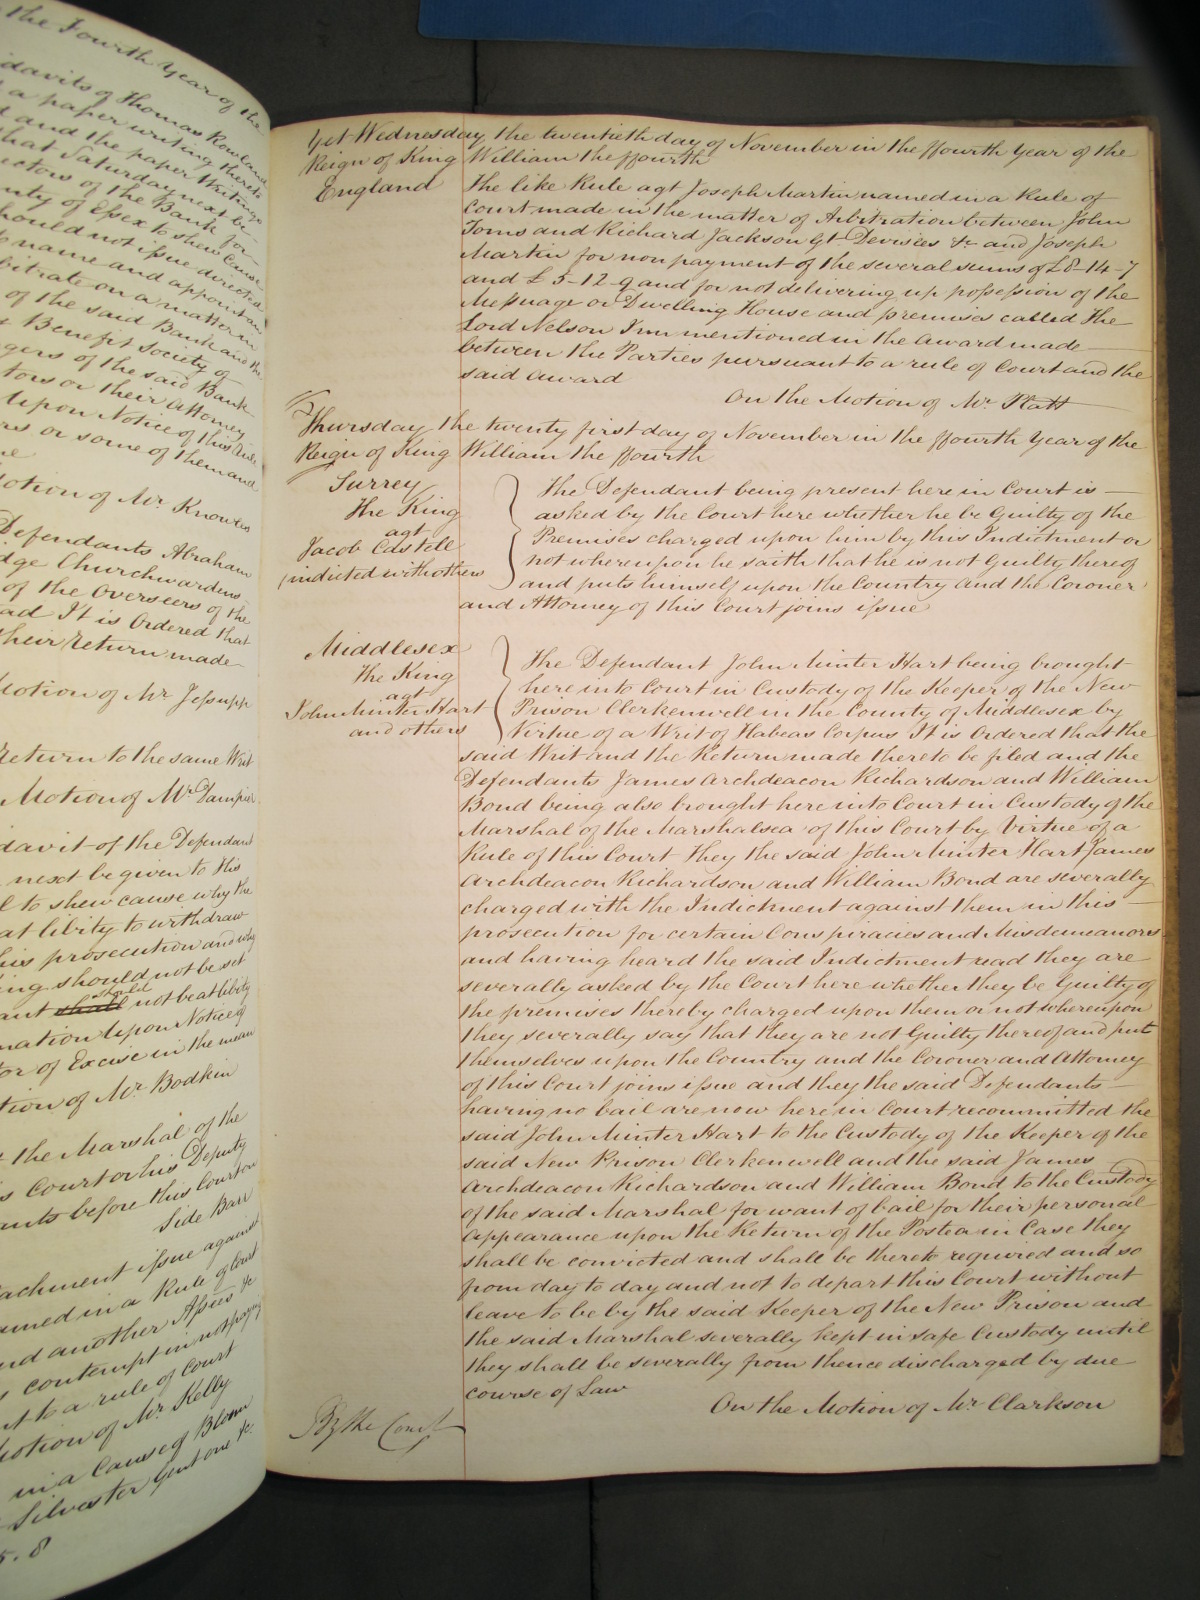 the Fourth Year of the
idavits of Thomas Rowland
a paper writing thereto
and the paper Writing
that Saturday next be
ectors of the Bank for
nty of Essex to shew Cause
hould not issue directed
name and appoint an
bitrate on a matter in
of the said Bank and the
Benefit Society of
gers of the said Bank
tors or their Attorney
Upon Notice of this Rule
rs or some of them and
Motion of Mr. Knowles
Defendants Abraham
dge Churchwardens
of the Overseers of the
ad It is Ordered that
their return made
Motion of Mr Jessupp
Return to the same Writ
Motion of Mr Dampier
davit of the Defendant
next be given to this
l to shew cause why the
at libity to withdraw
his prosecution and why
ing should not be set
should
ant shall not be at libity
mation Upon Notice of
or of Excise in the mean
tion of Mr. Bodkin
the Marshal of the
s Court or his Deputy
ants before this Court on
Side Barr
tachment issue against
amed in a Rule of Court
and another Assees &c
contempt in not paying
nt to a rule of Court
Motion of Mr. Kelly
in a Cause of Bloom
Silvester Gent one &c
5. 8
Yet Wednesday the twentieth day of November in the ffourth Year of the
Reign of King William the ffourth
England The like Rule agt Joseph Martin named in a Rule of
Court made in the matter of Arbitration between John
Toms and Richard Jackson Gt Devisees &c and Joseph
Martin for non payment of the several sums of £8-14-7
and £5-12-9 and for not delivering up possession of the
Messuage or Dwelling House and premises called The
Lord Nelson Inn mentioned in the award made
between the Parties pursuant to a rule of Court and the
said award
On the Motion of Mr. Platt
Thursday the twenty first day of November in the ffourth Year of the
Reign of King William the ffourth
Surrey
The King
agt
Jacob Castell
indicted with others
The Defendant being present here in Court is
asked by the Court here whether he be Guilty of the
Premises charged upon him by this Indictment or
not whereupon he saith that he is not Guilty thereof
and puts himself upon the Country and the Coroner
and Attorney of this Court joins issue
Middlesex
The King
agt
John Minter Hart
and others
The Defendant John Minter Hart being brought
here into Court in Custody of the Keeper of the New
Prison Clerkenwell in the County of Middlesex by
Virtue of a Writ of Habeas Corpus It is Ordered that the
said Writ and the Return made thereto be filed and the
Defendants James Archdeacon Richardson and William
Bond being also brought here into Court in Custody of the
Marshal of the Marshalsea of this Court by Virtue of a
Rule of this Court They the said John Minter Hart James
Archdeacon Richardson and William Bond are severally
charged with the Indictment against them in this
prosecution for certain Conspiracies and Misdemeanors
and having heard the said Indictment read they are
severally asked by the Court here whether they be Guilty of
the premises thereby charged upon them or not whereupon
they severally say that they are not Guilty thereof and put
themselves upon the Country and the Coroner and Attorney
of this Court joins issue and they the said Defendants
having no bail are now here in Court recommitted the
said John Minter Hart to the Custody of the Keeper of the
said New Prison Clerkenwell and the said James
Archdeacon Richardson and William Bond to the Custody
of the said Marshal for want of bail for their personal
appearance upon the Return of the Postea in Case they
shall be convicted and shall be thereto required and so
from day to day and not to depart this Court without
leave to be by the said Keeper of the New Prison and
the said Marshal severally kept in safe Custody until
they shall be severally from thence discharged by due
course of Law
On the Motion of Mr. Clarkson
By the Court